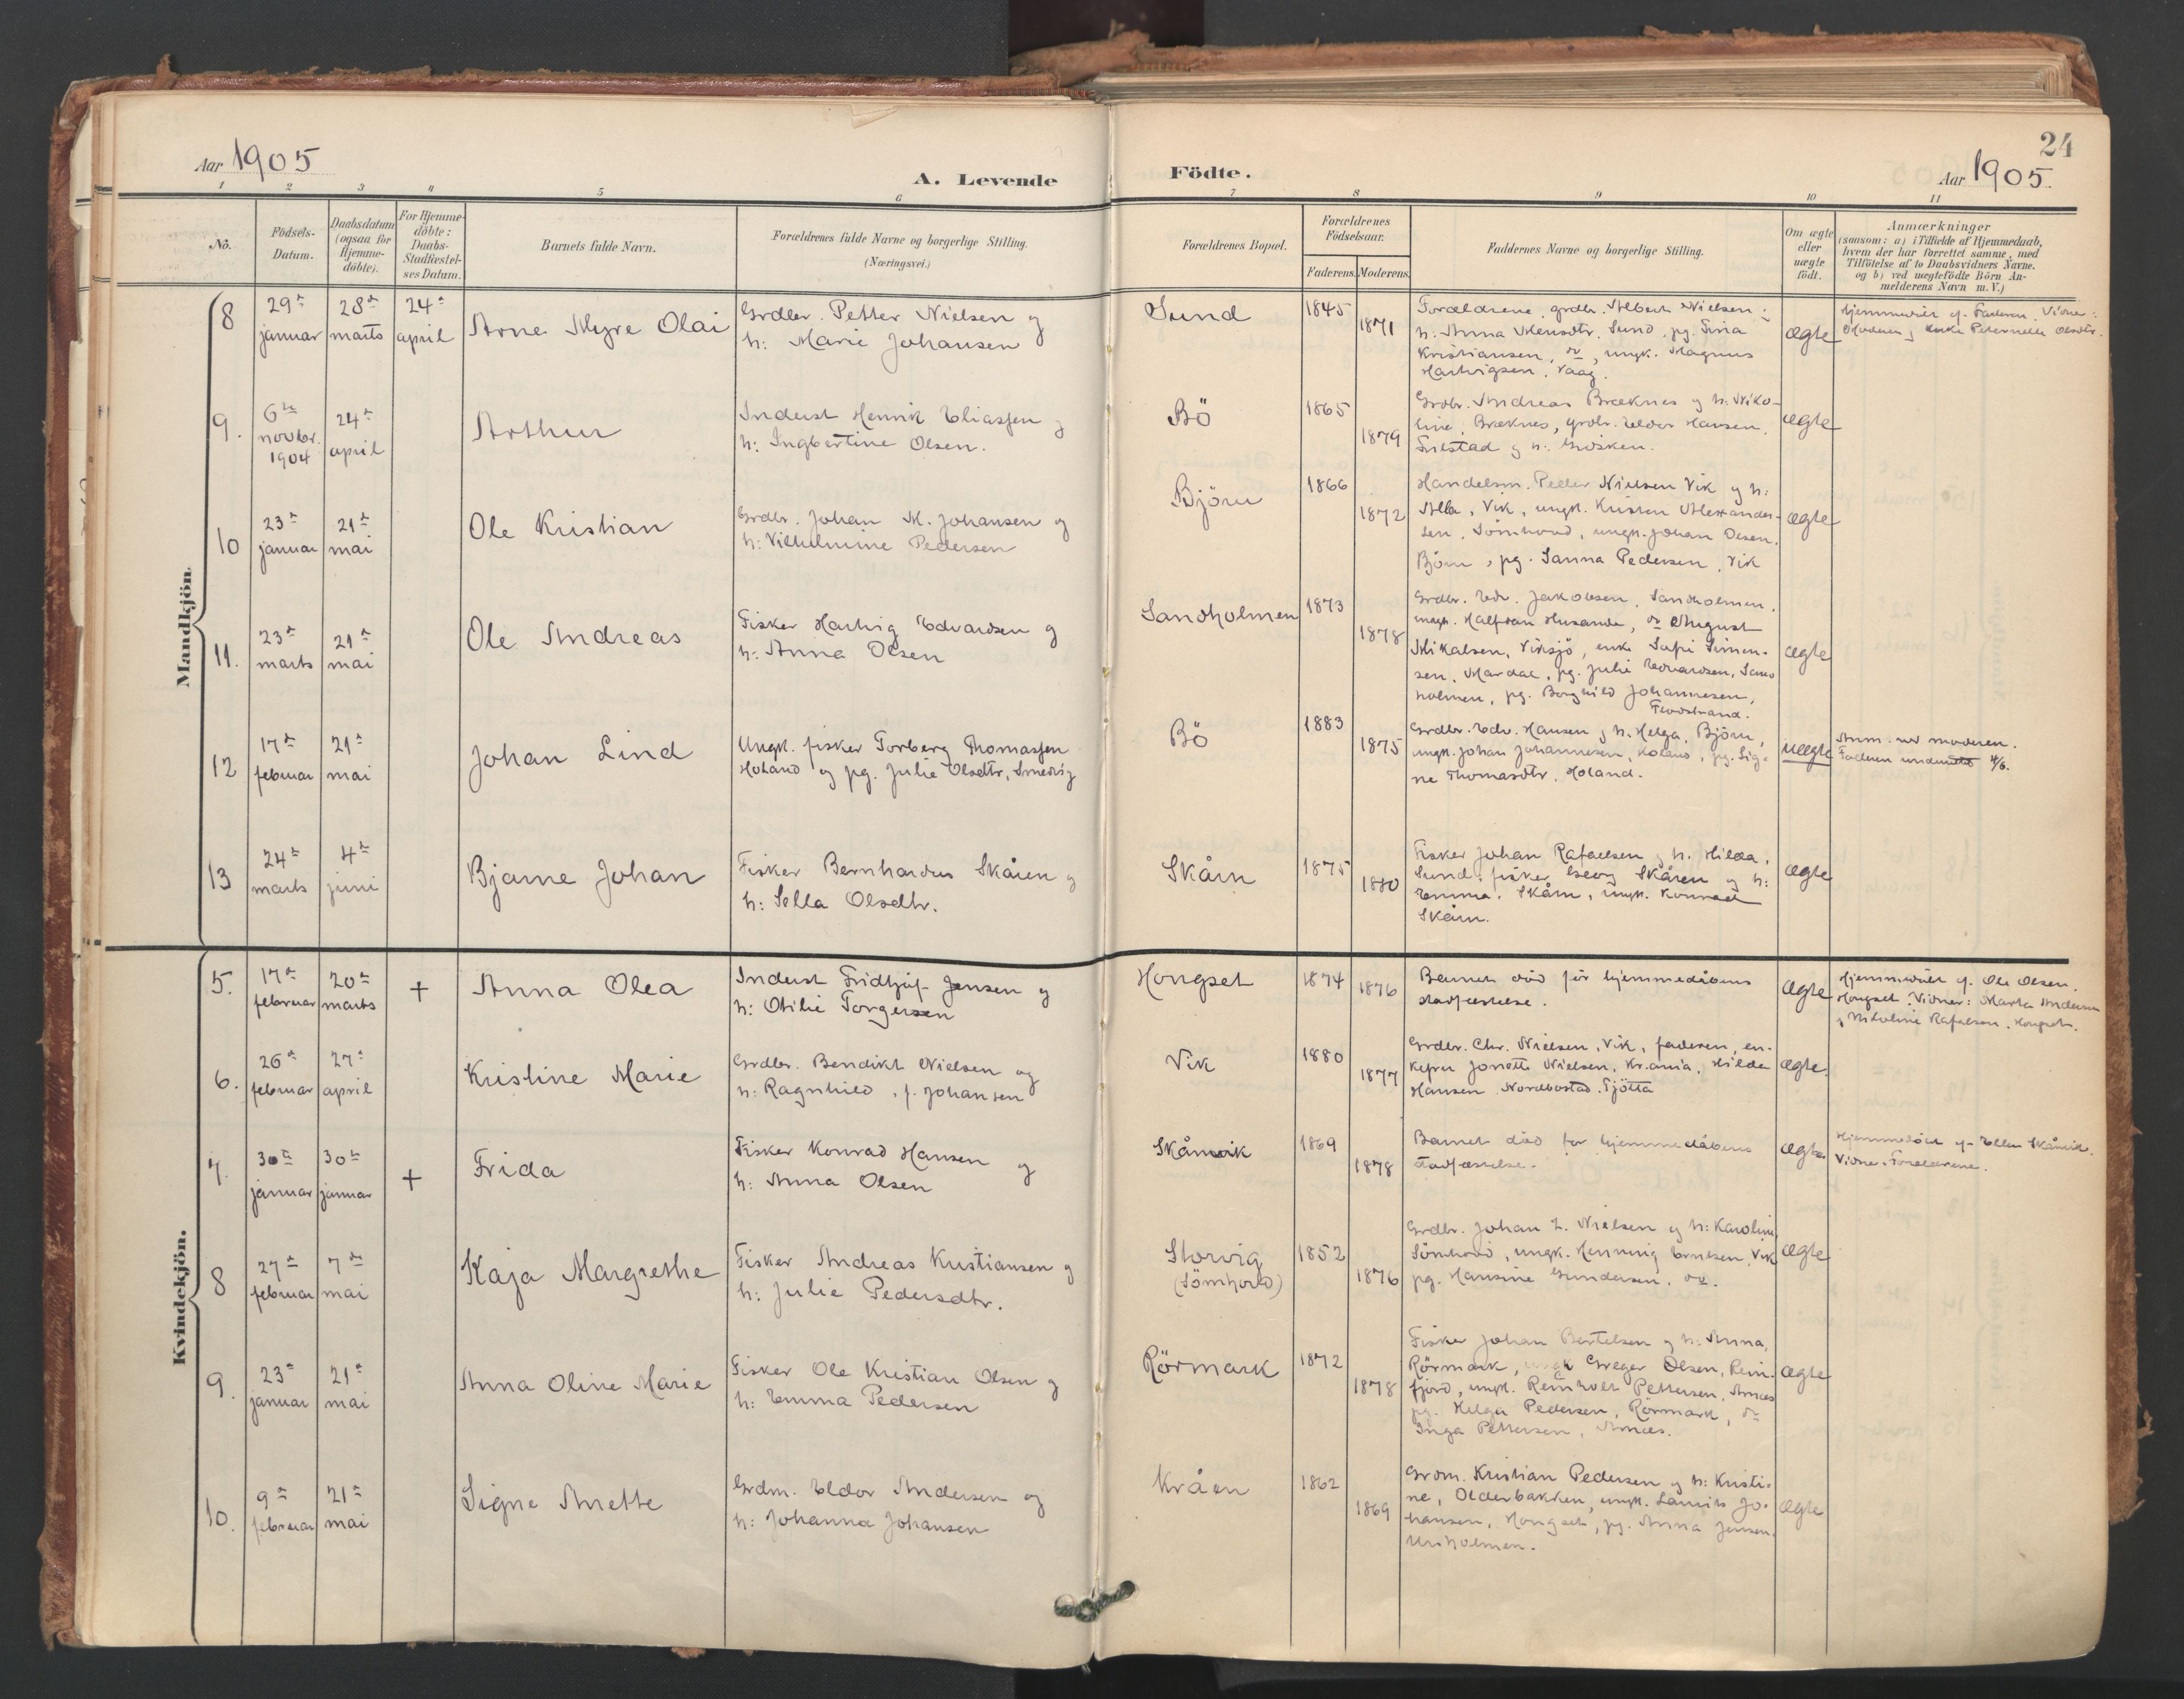 Aar 1905
A. Levende Födte.
24
Aar 1905.
1 2 3 4 5 6 7 8 9 10 11
No. Födsels-Datum. Daabsdatum (ogsaa for Hjemmedöbte). For Hjemmedöbte: Daabs-Stadfæstelses Datum. Barnets fulde Navn. Forældrenes fulde Navne og borgerlige Stilling. (Næringsvei.) Forældrenes Bopæl. Forældrenes Födselsaar. Faderens. Moderens. Faddernes Navne og borgerlige Stilling. Om ægte eller uægte födt. Anmærkninger (saasom: a) i Tilfælde af Hjemmedaab, hvem der har forrettet samme, med Tilföielse af to Daabsvidners Navne. og b) ved uægtefödte Börn Anmelderens Navn m. V.)
Mandkjön.
8 29de januar 28de marts 24de april Arne Myre Olai
Grdbr. Petter Nielsen og
h: Marie Johansen
Sund 1845 1871
Forældrene, grdbr. Albert Nielsen og
h: Anna Mensdtr. Sund, pg. Tina
Kristiansen, do, ungk. Magnus
Hartvigsen, Vaag.
ægte
Hjemmedöbt af Faderen. Vidne:
Moderen og enke Peternelle Olsdtr.
9. 6te novbr. 1904 24de april Arthur
Inderst Henrik Eliassen og
h: Ingbertine Olsen.
Bö 1865 1879
Grdbr. Andreas Bræknes og h: Niko-
line, Bræknes, grdbr. Eldor Hansen,
Tilstad og h:
ægte
10 23de januar 21de mai Ole Kristian
Grdbr. Johan M. Johansen og
h: Vilhelmine Pedersen
Björn 1866 1872
Handelsm. Peder Nielsen Vik og h:
Alla, Vik, ungk. Kristen Alexander-
sen, Sömhovd, ungk. Johan Olsen,
Björn, pg. Sanna Pedersen, Vik
ægte
11. 23de marts 21de mai Ole Andreas
Fisker Hartvig Edvardsen og
h: Anna Olsen
Sandholmen 1873 1878
Grdbr. Edv. Jakobsen, Sandholmen,
ungk. Halfdan Husande, do August
Mikalsen, Viksjö, enke Safi Simon-
sen, Mardal, pg. Julie Edvardsen, Sand-
holmen, pg. Borghild Johannesen,
Flostrand.
ægte
12 17de februar 21de mai Johan Lind
Ungk. fisker Torberg Thomassen
Holand og pg. Julie Olsdtr, Smedvig
Bö 1883 1875
Grdbr. Edv. Hansen og h: Helga, Björn,
ungk. Johan Johannesen, Holand, pg. Sig-
ne Thomasdtr, Holand.
uægte
Anm. ved moderen.
Faderen underrettet 4/6.
13 24de marts 4de juni Bjarne Johan
Fisker Bernhardus Skåren og
h: Sella Olsdtr.
Skårn 1875 1880
Fisker Johan Rafaelsen og h. Hilda,
Sund, fisker Georg Skåren og h:
Emma, Skårn, ungk. Konrad
Skårn.
ægte
Kvindekjön.
5. 17de februar 20de marts + Anna Olea
Inderst Fridtjof Jensen og
h: Otilie Torgersen
Hongset 1874 1876
Barnet död för hjemmedåbens
stadfæstelse.
ægte
Hjemmedöbt af Ole Olsen,
Hongset. Vidner: Marta Andersen
og Nikoline Rafaelsen, Hongset.
6. 26de februar 27de april Kristine Marie
Grdbr. Bendikt Nielsen og
h: Ragnhild, f. Johansen
Vik 1880 1877
Grdbr. Chr. Nielsen, Vik, faderen, en-
kefru Jonette Nielsen, Kr.ania, Hilda
Hansen Nordbostad. Tjötta
ægte.
7. 30te januar 30te januar + Frida
Fisker Konrad Hansen og
h: Anna Olsen
Skåmvik 1869 1878
Barnet död för hjemmedåbens
stadfæstelse.
ægte
Hjemmedöbt af Ellen Skåmvik.
Vidne: Forældrene.
8 27de februar 7de mai Kaja Margrethe
Fisker Andreas Kristiansen og
h: Julie Pedersdtr.
Storvig
(Sömhovd) 1852 1876
Grdbr. Johan Z. Nielsen og h: Karoline
Sömhovd, ungk. Henning Bentsen, Vik
pg. Hansine Gundersen, do.
ægte
9. 23de januar 21de mai Anna Oline Marie
Fisker Ole Kristian Olsen og
h: Emma Pedersen
Rörmark 1872 1878
Fisker Johan Bertelsen og h: Anna,
Rörmark, ungk Greger Olsen, Rein-
fjord, ungk. Reinholt Pettersen, Arnæs
pg. Helga Pedersen, Rörmark, do
Inga Pettersen, Arnæs.
ægte
10. 9de februar 21de mai Signe Anette
Grdm. Eldor Andersen og
h: Johanna Johansen
Kråen 1862 1869
Grdm. Kristian Pedersen og h: Kristi-
ne, Olderbakken, ungk. Laurits Jo-
hansen, Hongset, pg. Anna Jensen
Urholmen.
ægte